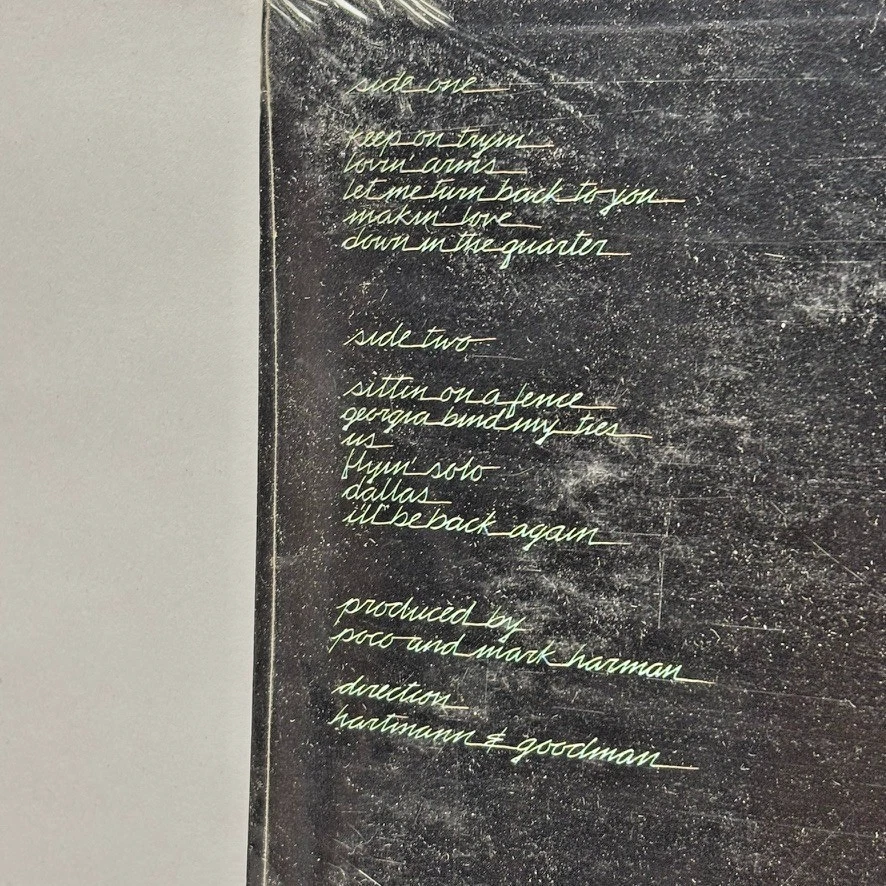 side one
keep on tryin'
lovin' arms
let me turn back to you
makin' love
down in the quarter
side two
sittin on a fence
georgia bind my ties
us
flyin' solo
dallas
i'll be back again
produced by
poco and mark harman
direction
hartmann & goodman